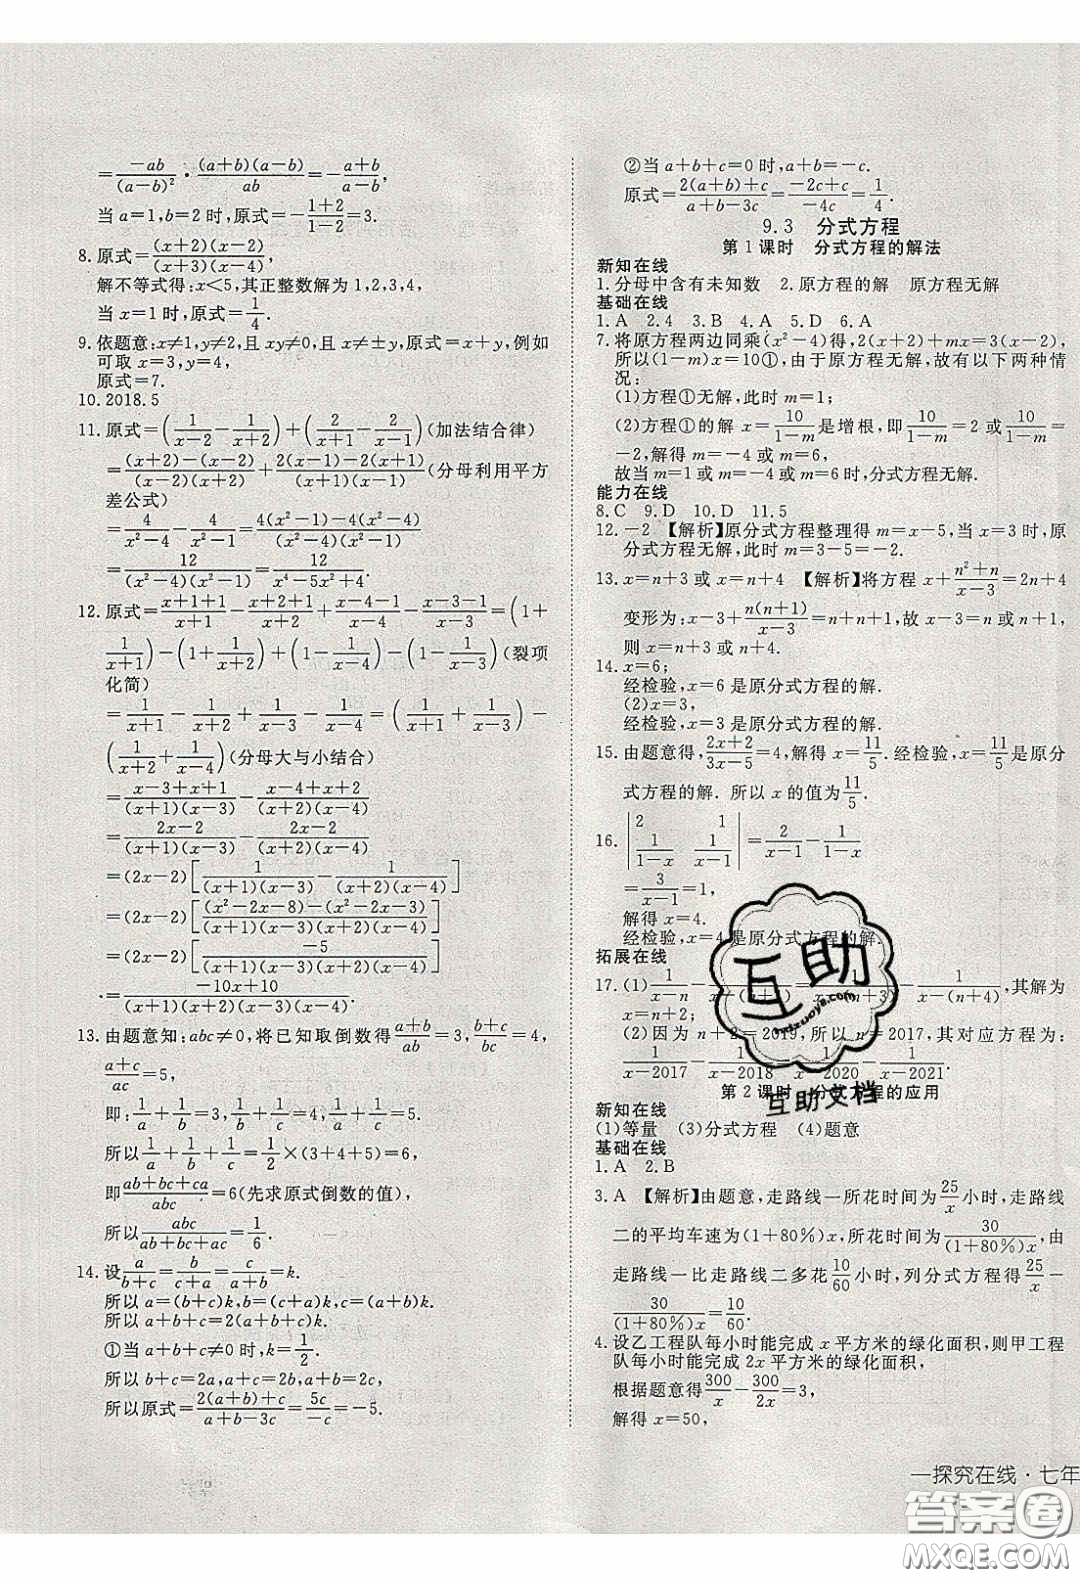 =\frac{-ab}{(a-b)²}·\frac{(a+b)(a-b)}{ab}=-\frac{a+b}{a-b},
当a=1,b=2时,原式=-\frac{1+2}{1-2}=3.
8.原式=\frac{(x+2)(x-2)}{(x+2)²},
解不等式得:x<5,其正整数解为1,2,3,4,
当x=1时,原式=\frac{1}{4}.
9.依题意:x≠1,y≠2,且xy≠0,且x≠±y,原式=x+y,例如
可取x=3,y=4,
原式=7.
10.2018.5
11.原式=(\frac{1}{x-2}-\frac{1}{x+2})+(\frac{2}{x+1}-\frac{2}{x-1})(加法结合律)
=\frac{(x+2)-(x-2)}{(x-2)(x+2)}+\frac{2(x-1)-2(x+1)}{(x+1)(x-1)}(分母利用平方
差公式)
=\frac{4}{x²-4}-\frac{4}{x²-1}=\frac{4(x²-1)-4(x²-4)}{(x²-4)(x²-1)}
=\frac{12}{(x²-4)(x²-1)}=\frac{12}{x⁴-5x²+4}.
12.原式=\frac{x+1+1}{x+1}-\frac{x+2+1}{x+2}+\frac{x-4-1}{x-4}-\frac{x-3-1}{x-3}=(1+
\frac{1}{x+1})-(1+\frac{1}{x+2})+(1-\frac{1}{x-4})-(1-\frac{1}{x-3})(裂项
化简)
=\frac{1}{x+1}-\frac{1}{x+2}+\frac{1}{x-3}-\frac{1}{x-4}=(\frac{1}{x+1}+\frac{1}{x-3})-
(\frac{1}{x+2}+\frac{1}{x-4})(分母大与小结合)
=\frac{x-3+x+1}{(x+1)(x-3)}-\frac{x-4+x+2}{(x+2)(x-4)}
=\frac{2x-2}{(x+1)(x-3)}-\frac{2x-2}{(x+2)(x-4)}
=(2x-2)[\frac{1}{(x+1)(x-3)}-\frac{1}{(x+2)(x-4)}]
=(2x-2)[\frac{(x²-2x-8)-(x²-2x-3)}{(x+1)(x-3)(x+2)(x-4)}]
=(2x-2)[\frac{-5}{(x+1)(x-3)(x+2)(x-4)}]
=\frac{-10x+10}{(x+1)(x+2)(x-3)(x-4)}.
13.由题意知:abc≠0,将已知取倒数得\frac{a+b}{ab}=3,\frac{b+c}{bc}=4,
\frac{a+c}{ac}=5,
即:\frac{1}{a}+\frac{1}{b}=3,\frac{1}{b}+\frac{1}{c}=4,\frac{1}{a}+\frac{1}{c}=5,
所以\frac{1}{a}+\frac{1}{b}+\frac{1}{c}=\frac{1}{2}×(3+4+5)=6,
即\frac{ab+bc+ca}{abc}=6(先求原式倒数的值),
所以\frac{abc}{ab+bc+ac}=\frac{1}{6}.
14.设\frac{a}{b+c}=\frac{b}{c+a}=\frac{c}{a+b}=k.
所以a=(b+c)k,b=(c+a)k,c=(a+b)k.
所以a+b+c=2(a+b+c)k.
①当a+b+c≠0时,k=\frac{1}{2}.
所以b+c=2a,c+a=2b,a+b=2c.
所以原式=\frac{2(a+b)+c}{a+b-3c}=\frac{5c}{-c}=-5.
②当a+b+c=0时,a+b=-c.
原式=\frac{2(a+b)+c}{a+b-3c}=\frac{-2c+c}{-4c}=\frac{1}{4}.
9.3 分式方程
第1课时 分式方程的解法
新知在线
1.分母中含有未知数 2.原方程的解 原方程无解
基础在线
1.A 2.4 3.B 4.A 5.D 6.A
7.将原方程两边同乘(x²-4)得,2(x+2)+mx=3(x-2),
所以(1-m)x=10①,由于原方程无解,故有以下两种情
况:
(1)方程①无解,此时m=1;
(2)方程①的解x=\frac{10}{1-m}是增根,即\frac{10}{1-m}=2或\frac{10}{1-m}=
-2,解得m=-4或m=6;
故当m=1或m=-4或m=6时,分式方程无解.
能力在线
8.C 9.D 10.D 11.5
12.-2 【解析】原分式方程整理得m=x-5,当x=3时,原
分式方程无解,此时m=3-5=-2.
13.x=n+3或x=n+4 【解析】将方程x+\frac{n²+n}{x-3}=2n+4
变形为:x-3+\frac{n(n+1)}{x-3}=n+n+1,故x-3=n或n+1,
则x=n+3或n+4.
14.x=6;
经检验,x=6是原分式方程的解.
(2)x=3,
经检验,x=3是原分式方程的解.
15.由题意得,\frac{2x+2}{3x-5}=4,解得x=\frac{11}{5}.经检验,x=\frac{11}{5}是原分
式方程的解.所以x的值为\frac{11}{5}.
16.|2 1; \frac{1}{1-x} \frac{1}{x-1}|=\frac{2}{x-1}-\frac{1}{1-x}
=\frac{3}{x-1}=1,
解得x=4.
经检验,x=4是原分式方程的解.
拓展在线
17.(1)\frac{1}{x-n}-\frac{1}{x-(n+1)}=\frac{1}{x-(n+3)}-\frac{1}{x-(n+4)},其解为
x=n+2;
(2)因为n+2=2019,所以n=2017,其对应方程为:
\frac{1}{x-2017}-\frac{1}{x-2018}=\frac{1}{x-2020}-\frac{1}{x-2021}.
第2课时 分式方程的应用
新知在线
(1)等量 (3)分式方程 (4)题意
基础在线
1.A 2.B
3.A 【解析】由题意,走路线一所花时间为\frac{25}{x}小时,走路线
二的平均车速为(1+80%)x,所花时间为\frac{30}{(1+80%)x},由
走路线一比走路线二多花\frac{10}{60}小时,列分式方程得\frac{25}{x}-
\frac{30}{(1+80%)x}=\frac{10}{60}.
4.设乙工程队每小时能完成x平方米的绿化面积,则甲工程
队每小时能完成2x平方米的绿化面积,
根据题意得\frac{300}{x}-\frac{300}{2x}=3,
解得x=50,
互助
互助文档
一探究在线·七年
答案圈
MXQE.COM